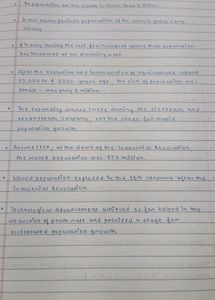 • The population on the earth is more than 6 billion.
• In the early periods population of the world grew very
slowly.
• It is only during the last few hundred years that population
has increased at an alarming rate.
• After the evolution and introduction of agriculture about
12,000 to 8000 years ago, the size of population was
small - roughly 8 million.
• The expanding world trade during the sixteenth and
seventeenth century, set the stage for rapid
population growth
• Around 1750, at the dawn of the Industrial Revolution
the world population was 550 million.
• World population exploded in the 18th century after the
Industrial Revolution
• Technological advancement achieved so far helped in the
reduction of death rate and provided a stage for
accelerated population growth